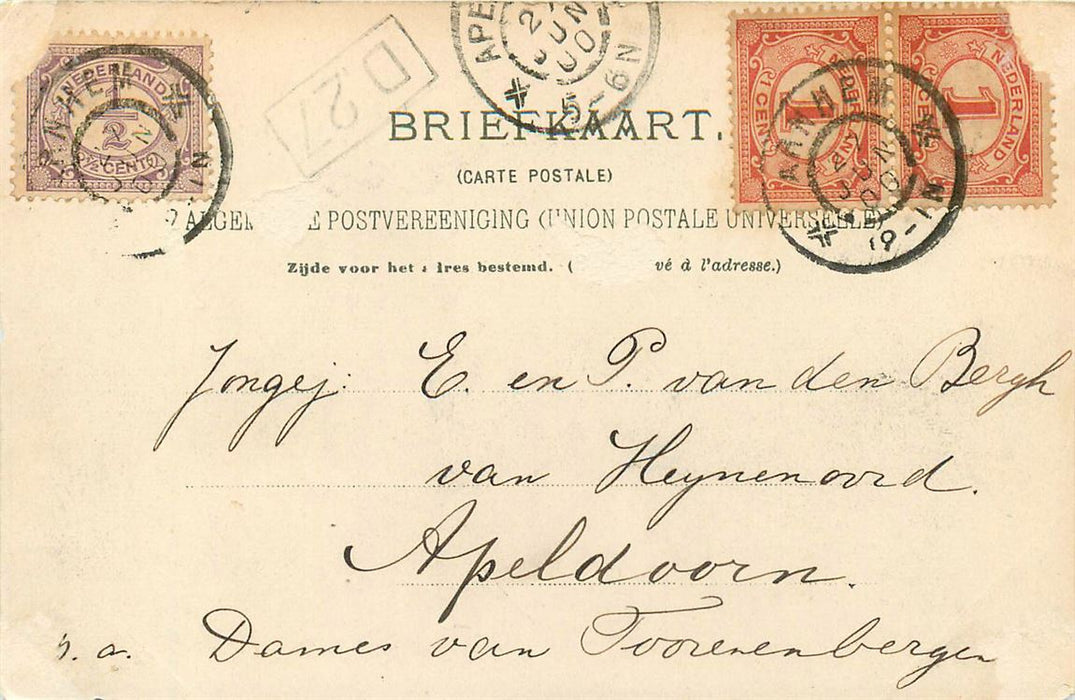 NEDERLAND
½
½ CENT
ARNHEM
D 27
APE
JUN
00
5-6N
1
1 CENT
NEDERLAND
1
NEDERLAND
ARNHEM
27
JUN
00
BRIEFKAART.
(CARTE POSTALE)
ALGE E POSTVEREENIGING (UNION POSTALE UNIVERSELLE)
Zijde voor het dres bestemd. ( vé à l'adresse.)
Jongej: E. en P. van den Bergh
van Heynenoord.
Apeldoorn.
p. a. Dames van Toorenenbergen